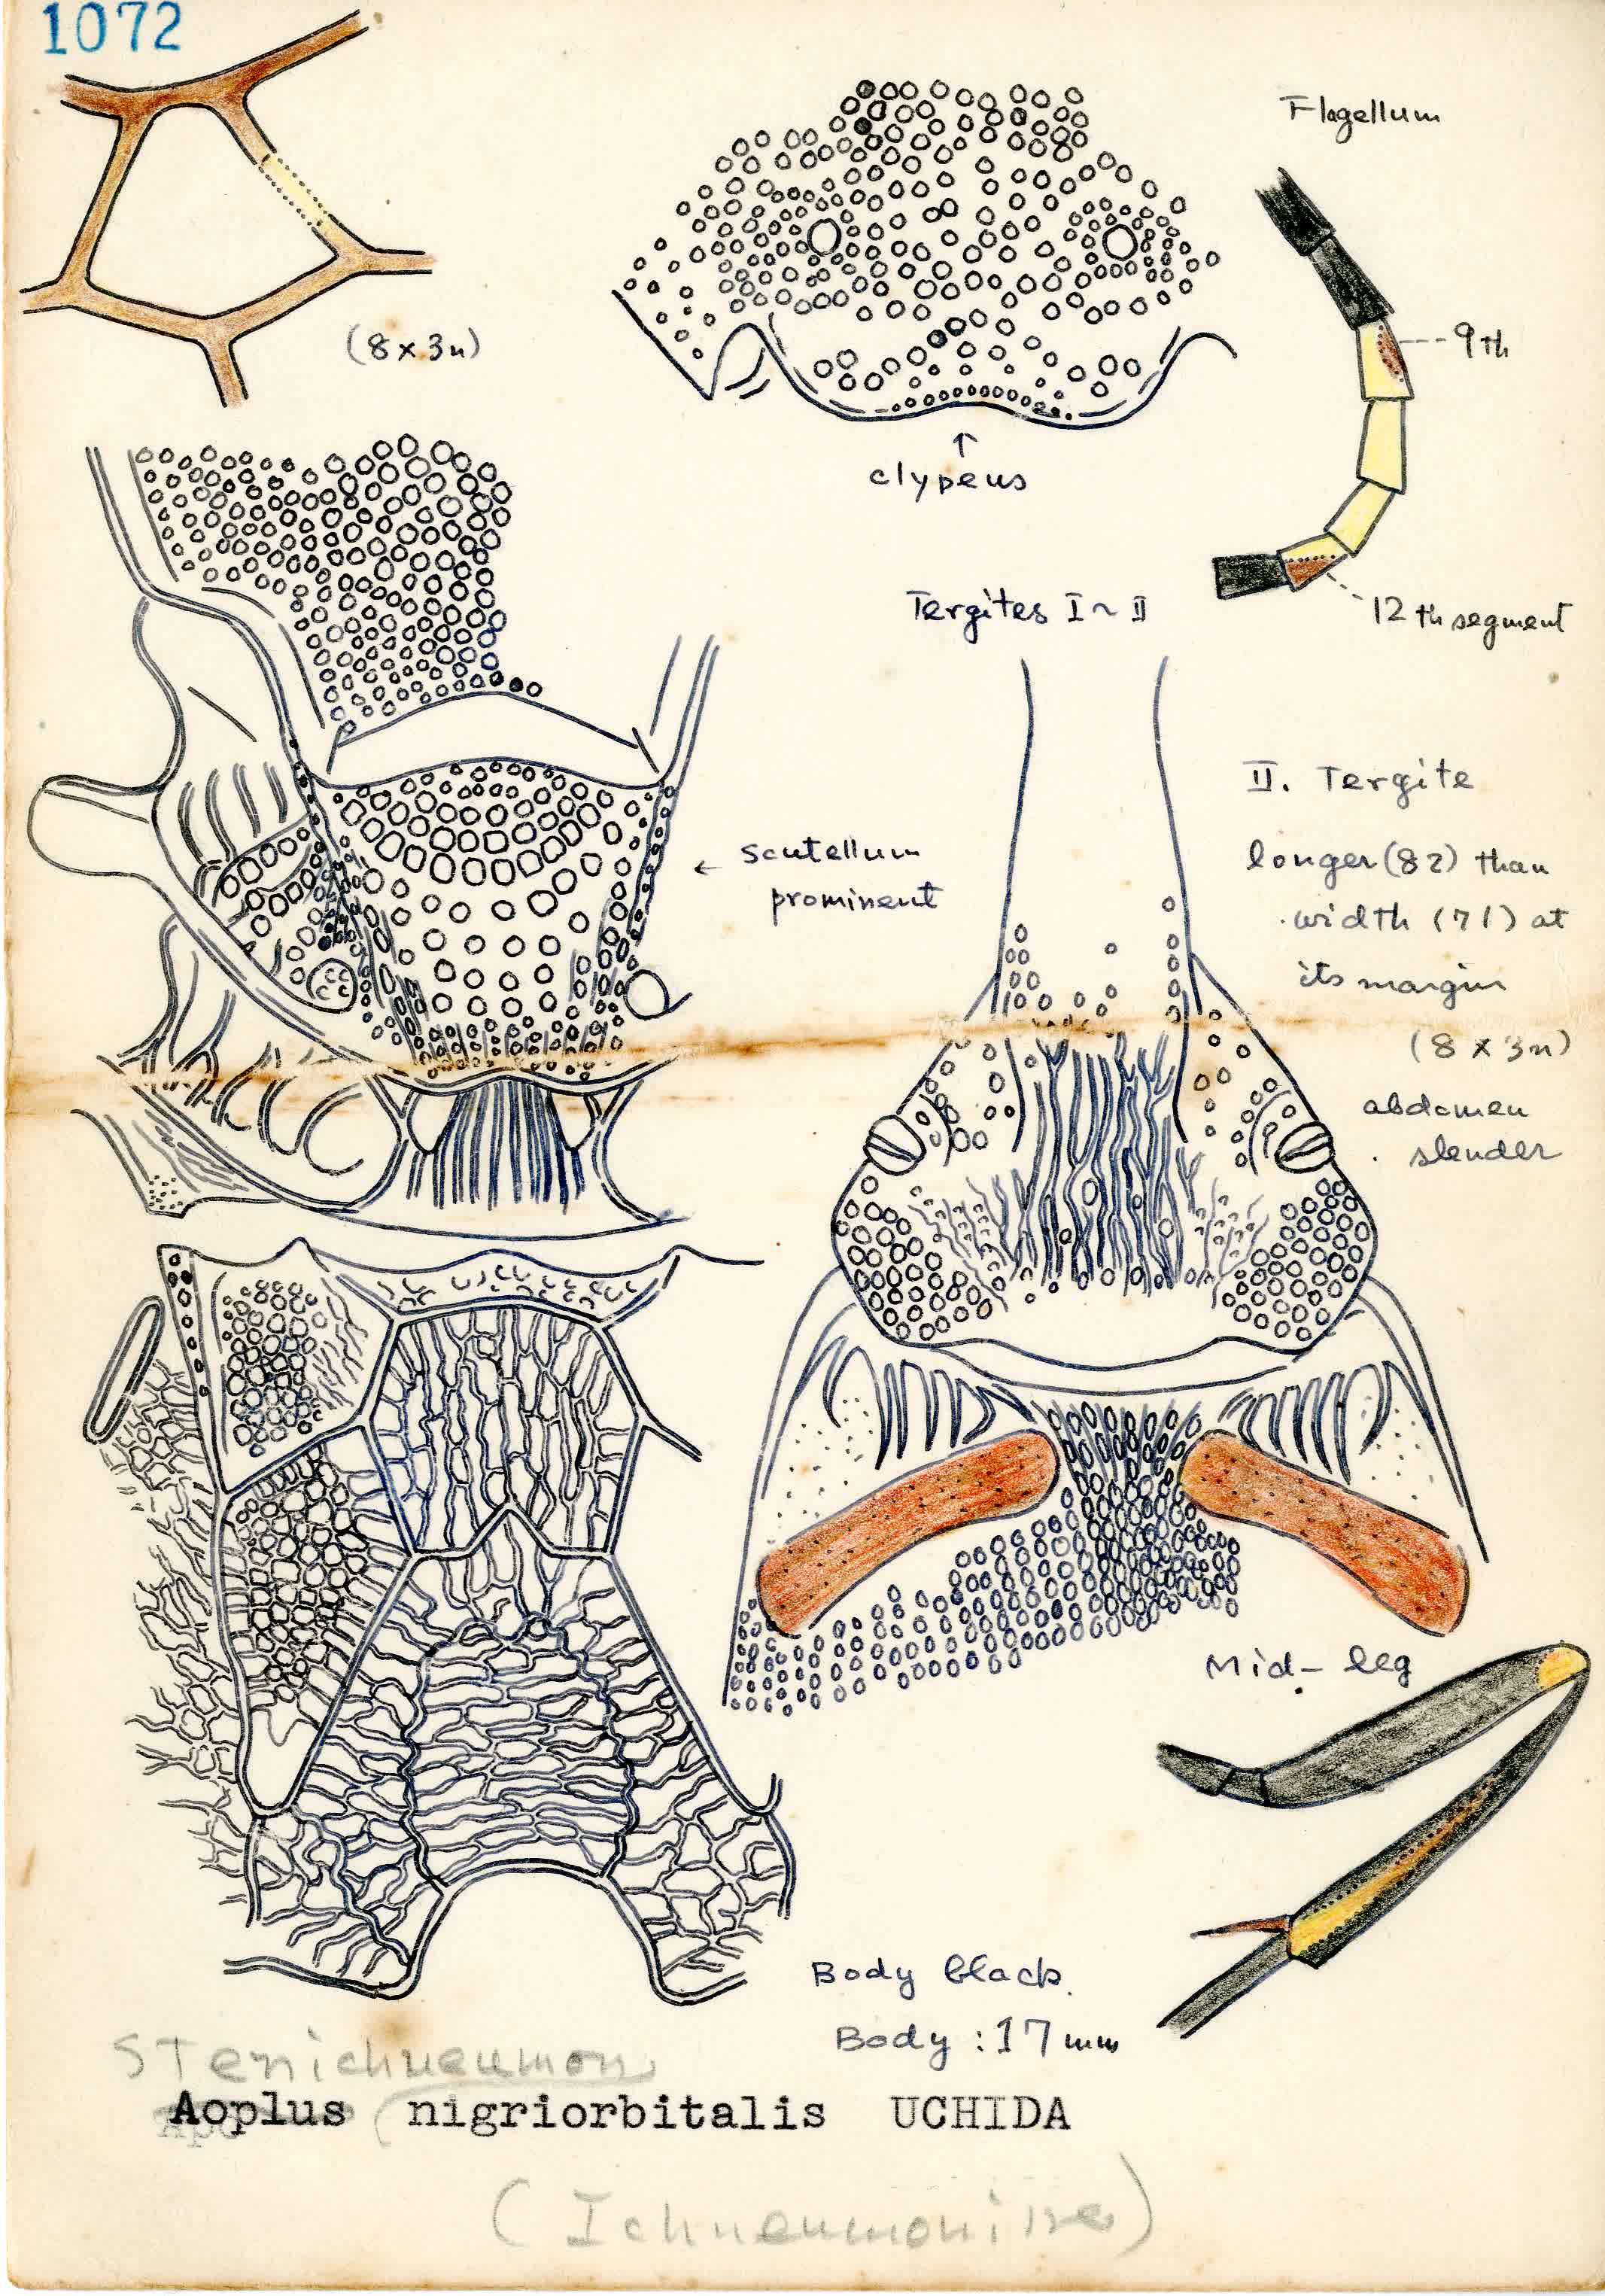 1072
(8 x 3n)
Flagellum
9 th
12 th segment
↑
clypeus
Tergites I ~ II
← scutellum
prominent
II. Tergite
longer (82) than
width (71) at
its margin
(8 x 3n)
abdomen
slender
Mid- leg
Body black.
Body : 17 mm
Stenichneumon
Aoplus nigriorbitalis UCHIDA
(Ichneumoninae)